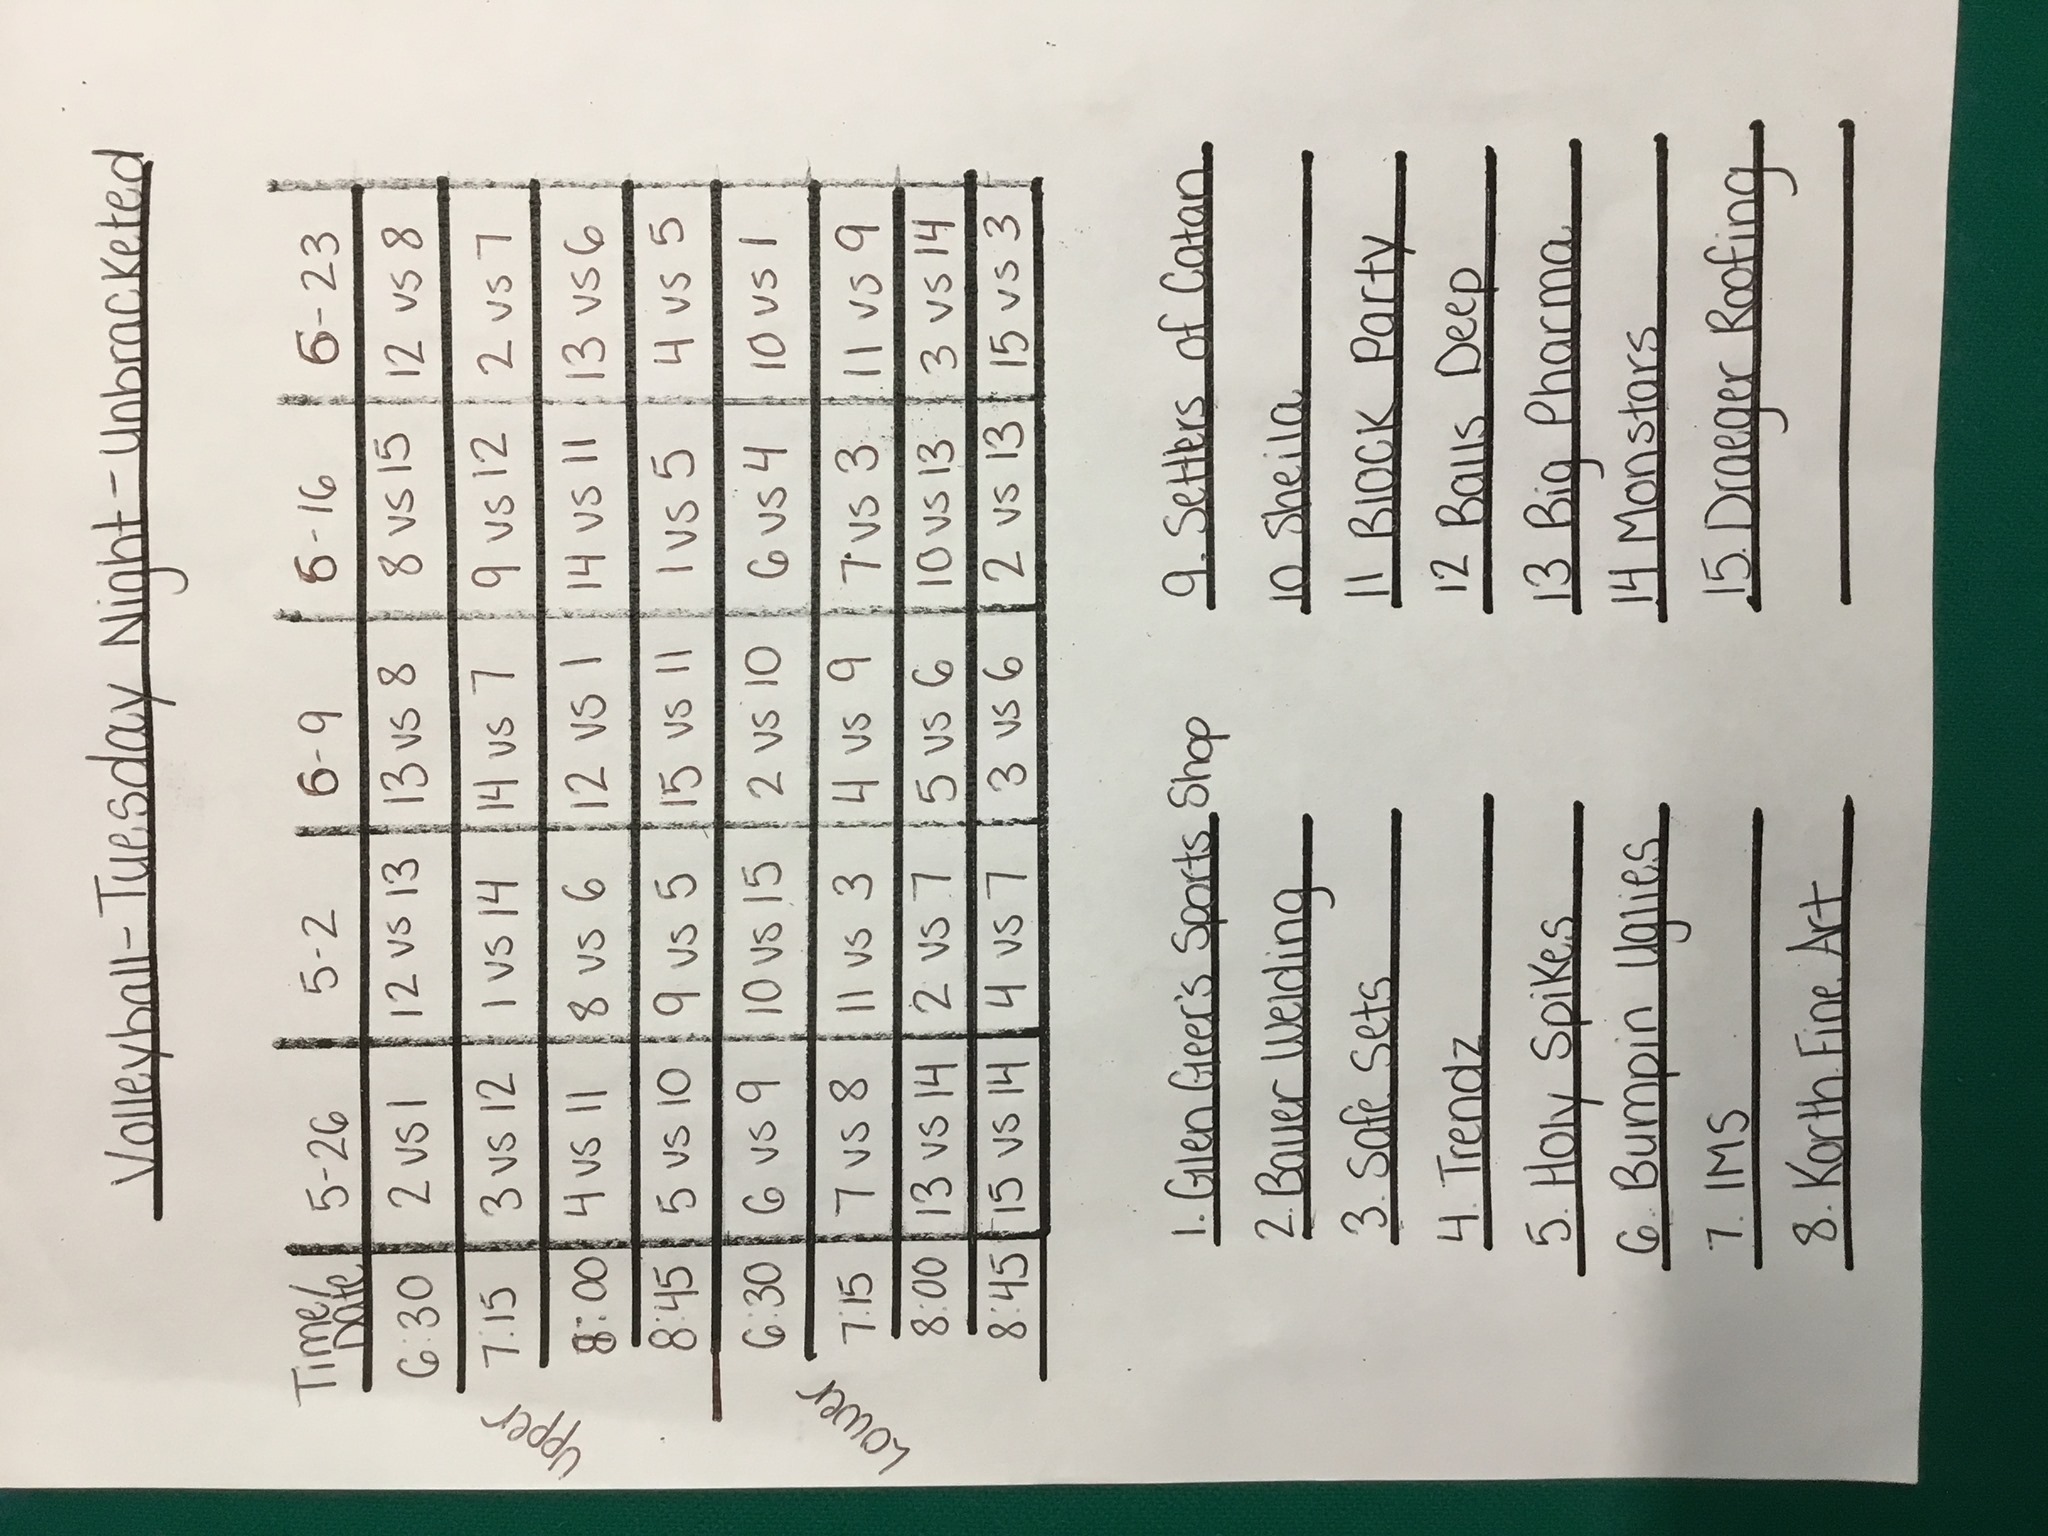 Volleyball-Tuesday Night-Unbracketed
Time/Date 5-26 5-2 6-9 6-16 6-23
Upper
6:30 2 vs 1 12 vs 13 13 vs 8 8 vs 15 12 vs 8
7:15 3 vs 12 1 vs 14 14 vs 7 9 vs 12 2 vs 7
8:00 4 vs 11 8 vs 6 12 vs 1 14 vs 11 13 vs 6
8:45 5 vs 10 9 vs 5 15 vs 11 1 vs 5 4 vs 5
Lower
6:30 6 vs 9 10 vs 15 2 vs 10 6 vs 4 10 vs 1
7:15 7 vs 8 11 vs 3 4 vs 9 7 vs 3 11 vs 9
8:00 13 vs 14 2 vs 7 5 vs 6 10 vs 13 3 vs 14
8:45 15 vs 14 4 vs 7 3 vs 6 2 vs 13 15 vs 3
1. Glen Geer's Sports Shop
2. Bauer Welding
3. Safe Sets
4. Trendz
5. Holy Spikes
6. Bumpin Uglies
7. IMS
8. Korth Fine Art
9. Setters of Catan
10 Sheila
11 Block Party
12 Balls Deep
13 Big Pharma
14 Monstars
15. Draeger Roofing